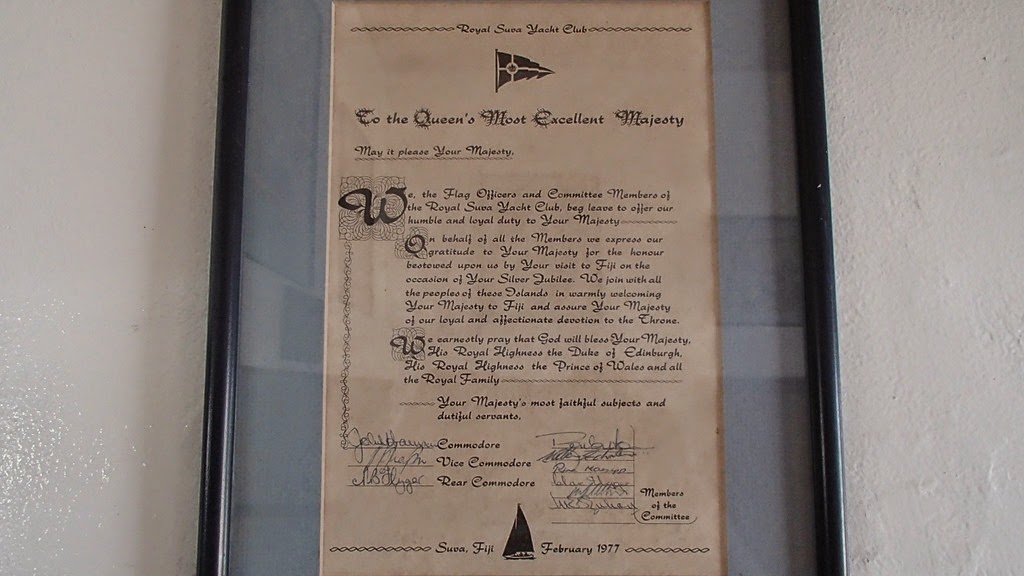 Royal Suva Yacht Club
To the Queen's Most Excellent Majesty
May it please Your Majesty,
We, the Flag Officers and Committee Members of
the Royal Suva Yacht Club, beg leave to offer our
humble and loyal duty to Your Majesty
On behalf of all the Members we express our
gratitude to Your Majesty for the honour
bestowed upon us by Your visit to Fiji on the
occasion of Your Silver Jubilee. We join with all
the peoples of these Islands in warmly welcoming
Your Majesty to Fiji and assure Your Majesty
of our loyal and affectionate devotion to the Throne.
We earnestly pray that God will bless Your Majesty,
His Royal Highness the Duke of Edinburgh,
His Royal Highness the Prince of Wales and all
the Royal Family
Your Majesty's most faithful subjects and
dutiful servants,
Commodore
Vice Commodore
Rear Commodore
Members
of the
Committee
Suva, Fiji February 1977